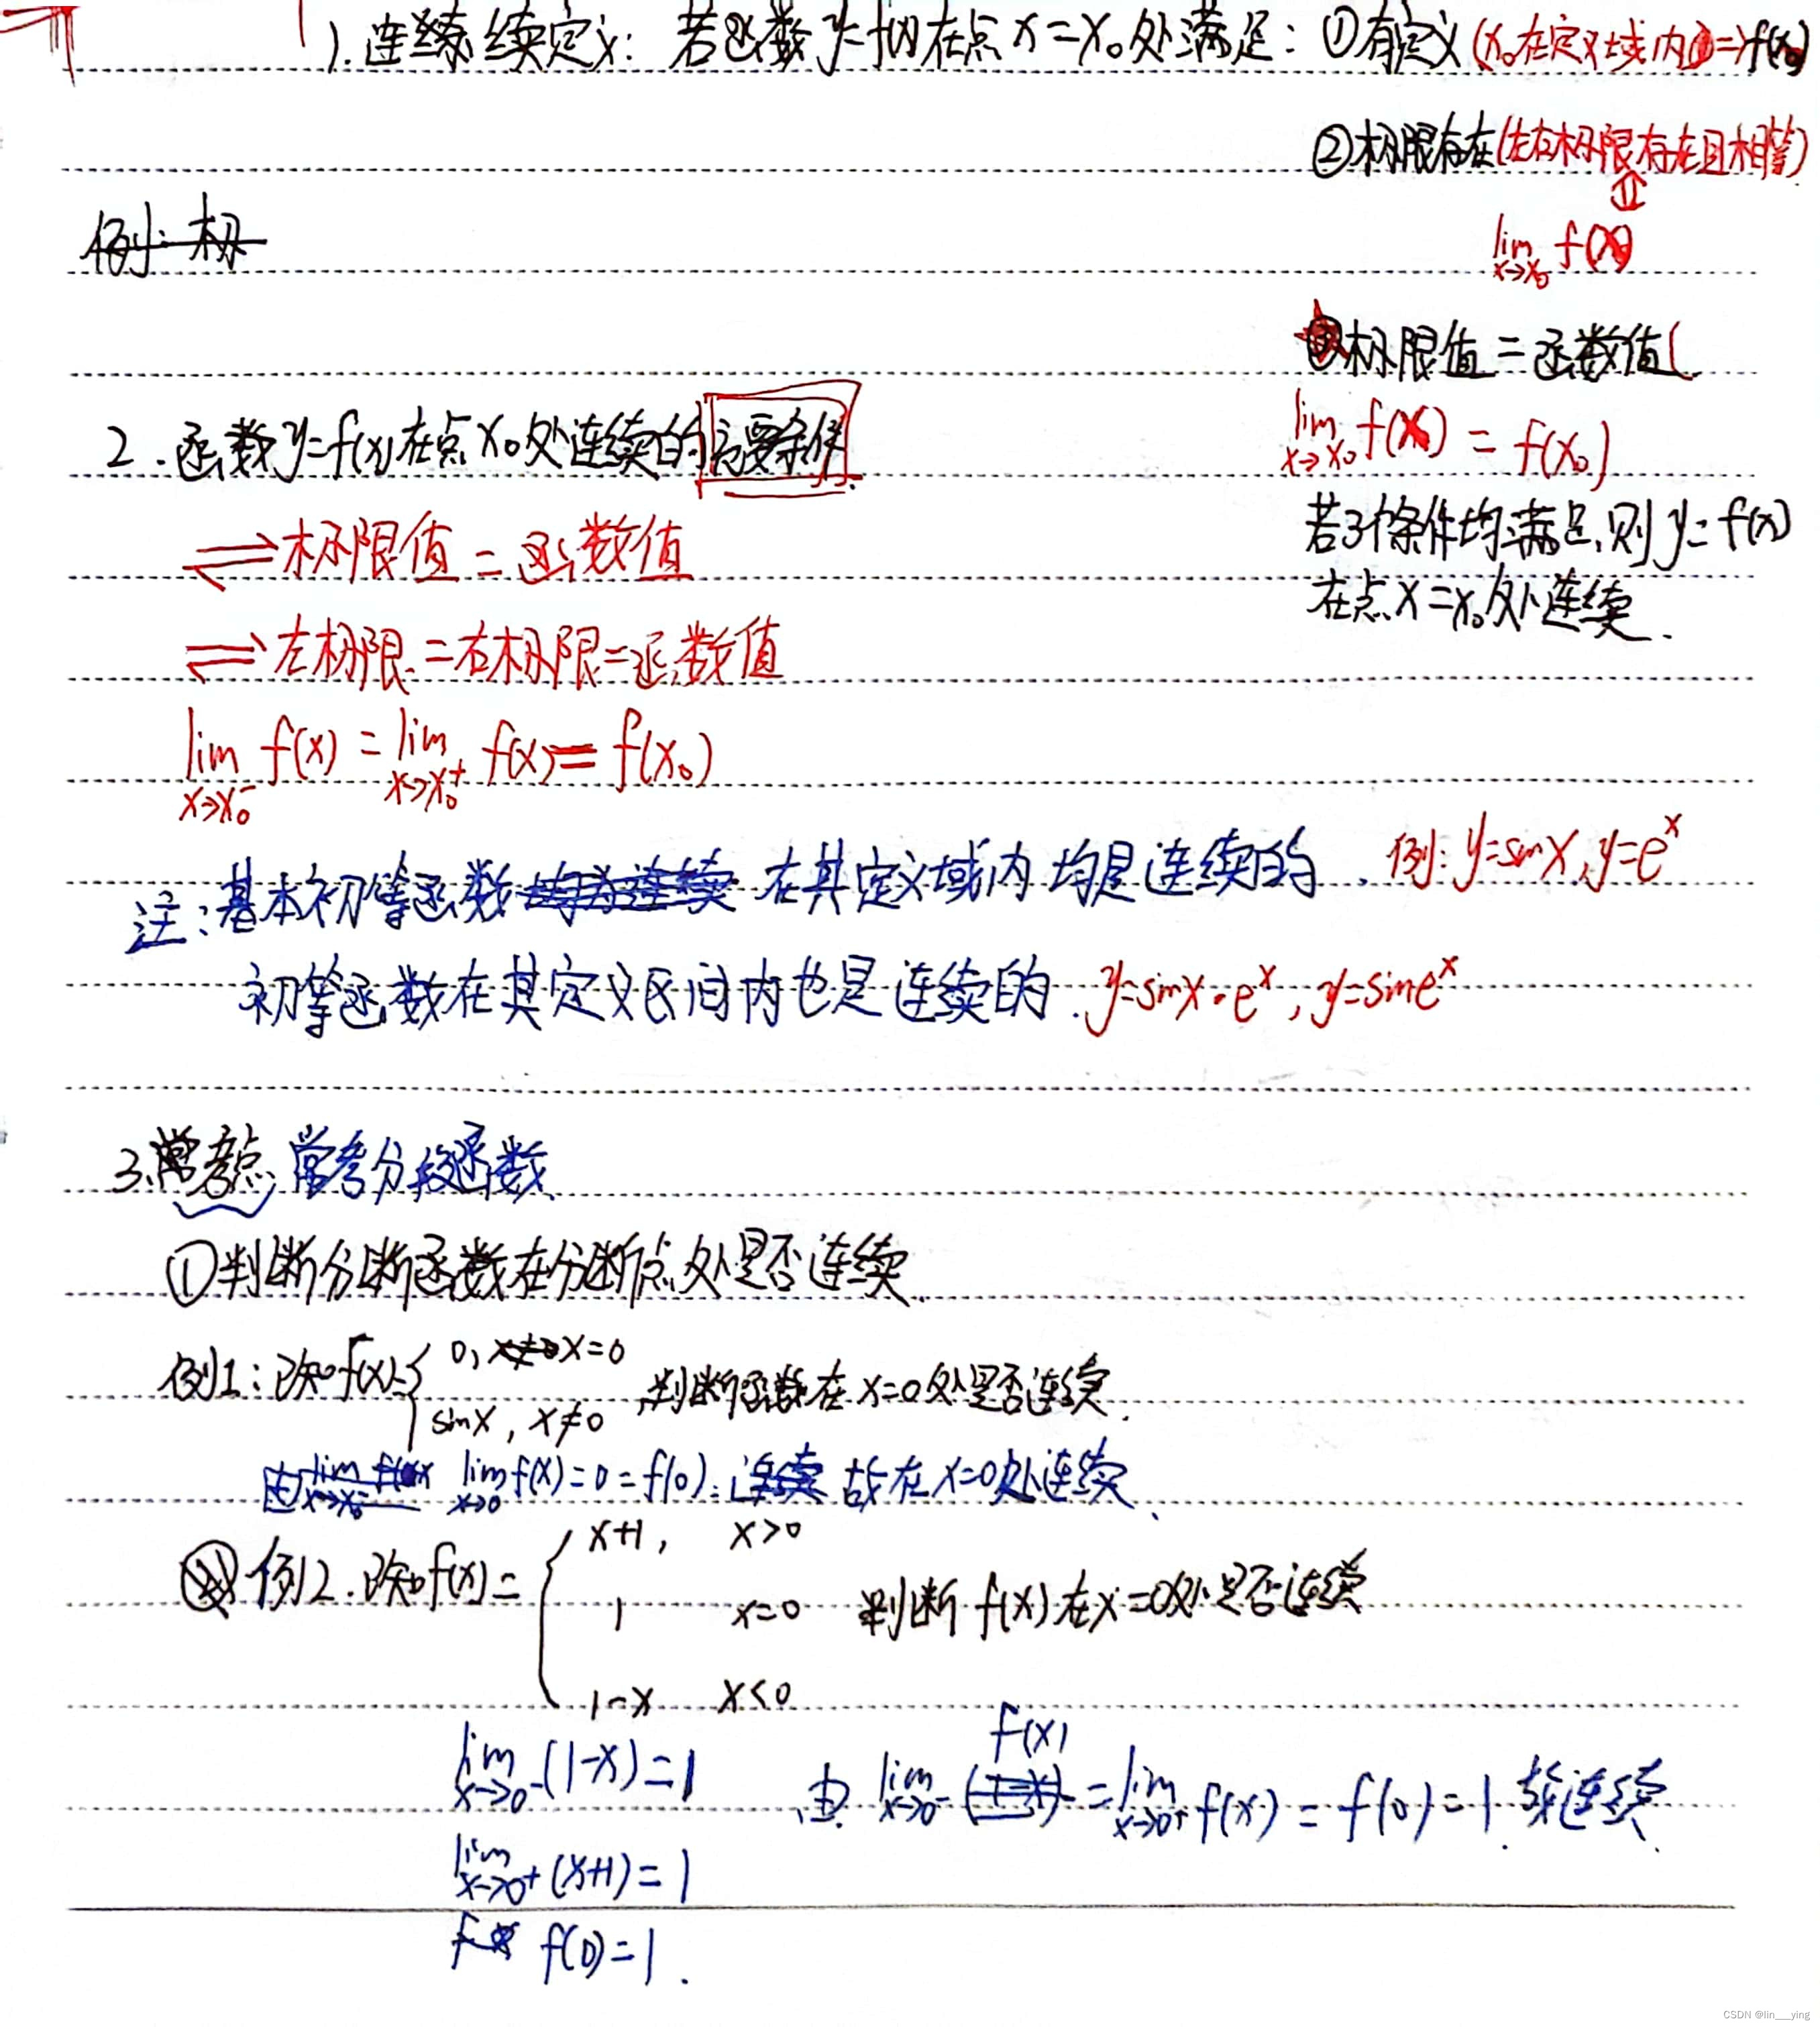 1. 连续定义: 若函数y=f(x)在点x=x₀处满足: ①有定义(x₀在定义域内)⇒f(x₀)
②极限存在(左右极限存在且相等)
⇕
lim x→x₀ f(x)
例: 极
③极限值=函数值(
lim x→x₀ f(x) = f(x₀)
若3个条件均满足,则y=f(x)
在点x=x₀处连续.
2.函数y=f(x)在点x₀处连续的充要条件.
⇌极限值=函数值
⇌左极限=右极限=函数值
lim x→x₀⁻ f(x) = lim x→x₀⁺ f(x) = f(x₀)
注:基本初等函数均为连续 在其定义域内均是连续的. 例: y=sinx, y=eˣ
初等函数在其定义区间内也是连续的. y=sinx·eˣ, y=sineˣ
3.常考点: 常考分段函数.
①判断分断函数在分断点处是否连续.
例1:已知f(x)={ 0, x≠0 x=0
sinx, x≠0 ,判断函数在x=0处是否连续.
由 lim x→x₀⁻ f(x) lim x→0 f(x)=0=f(0). 连续 故在x=0处连续.
例2.已知f(x)={ x+1, x>0
1 x=0 判断f(x)在x=0处是否连续
1-x x<0
lim x→0⁻ (1-x)=1
由 lim x→0⁻ (1-x) f(x) = lim x→0⁺ f(x) = f(0)=1. 故连续.
lim x→0⁺ (x+1)=1
f(0)=1.
CSDN @lin___ying